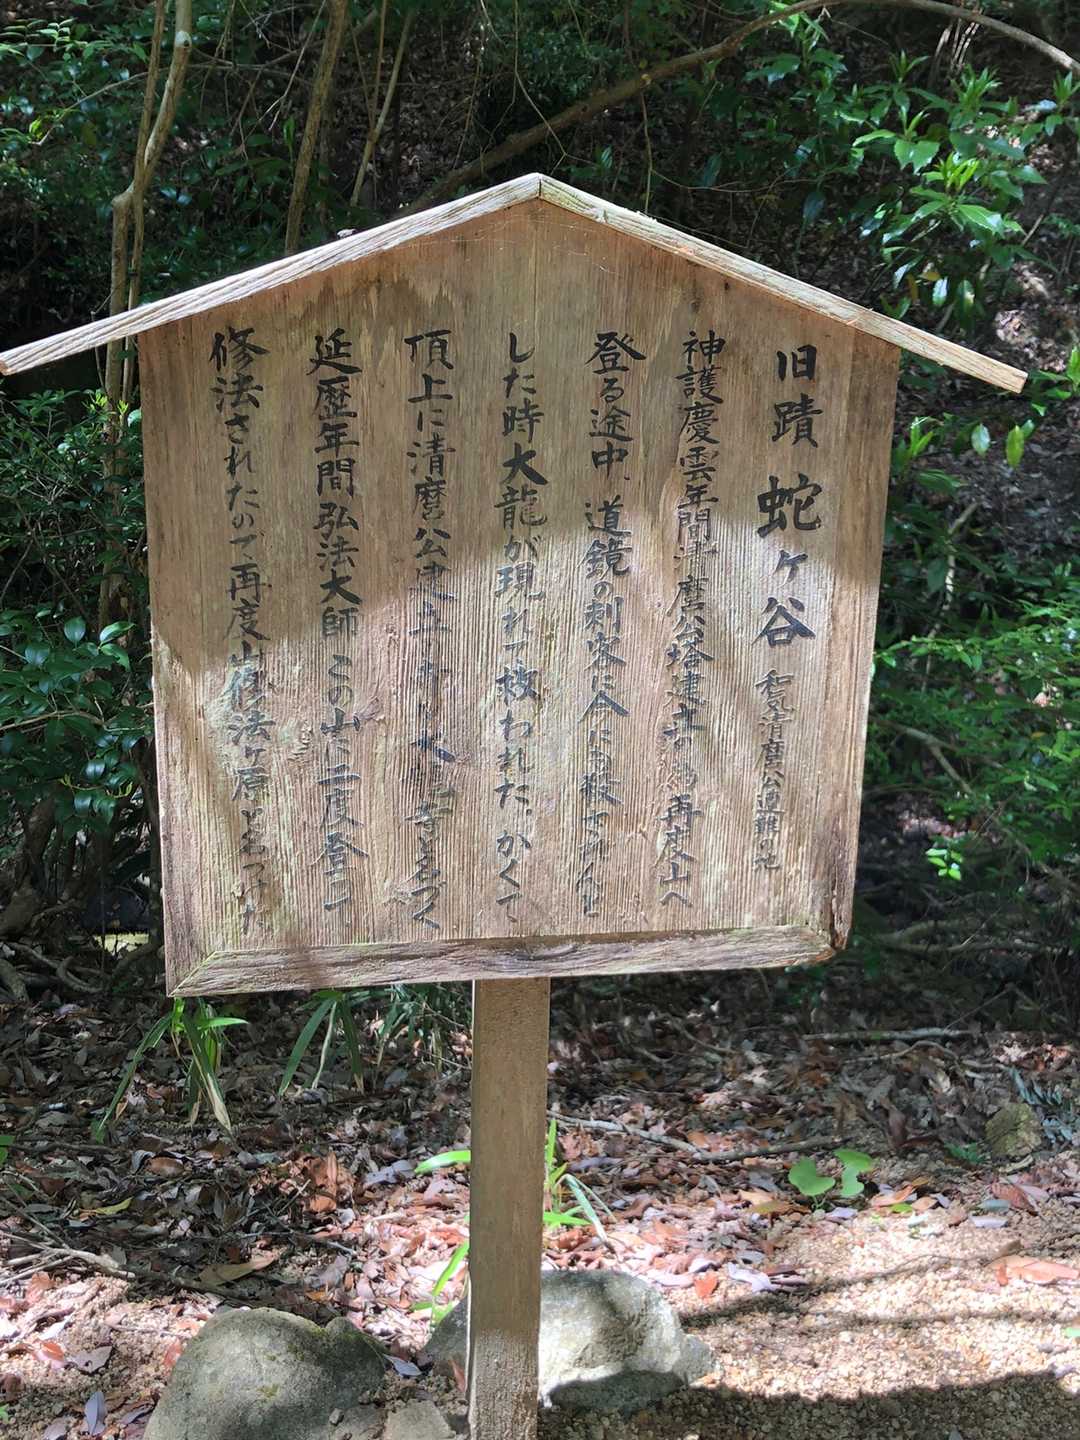 旧蹟 蛇ヶ谷 和気清磨公遭難の地
神護慶雲年間清磨公塔建立の為再度山へ
登る途中、道鏡の刺客に今にも殺されんと
した時大龍が現れて救われた。かくて
頂上に清磨公建立 大 寺と名づく
延歴年間弘法大師 この山に二度登って
修法されたので再度山修法ヶ原と名つけた